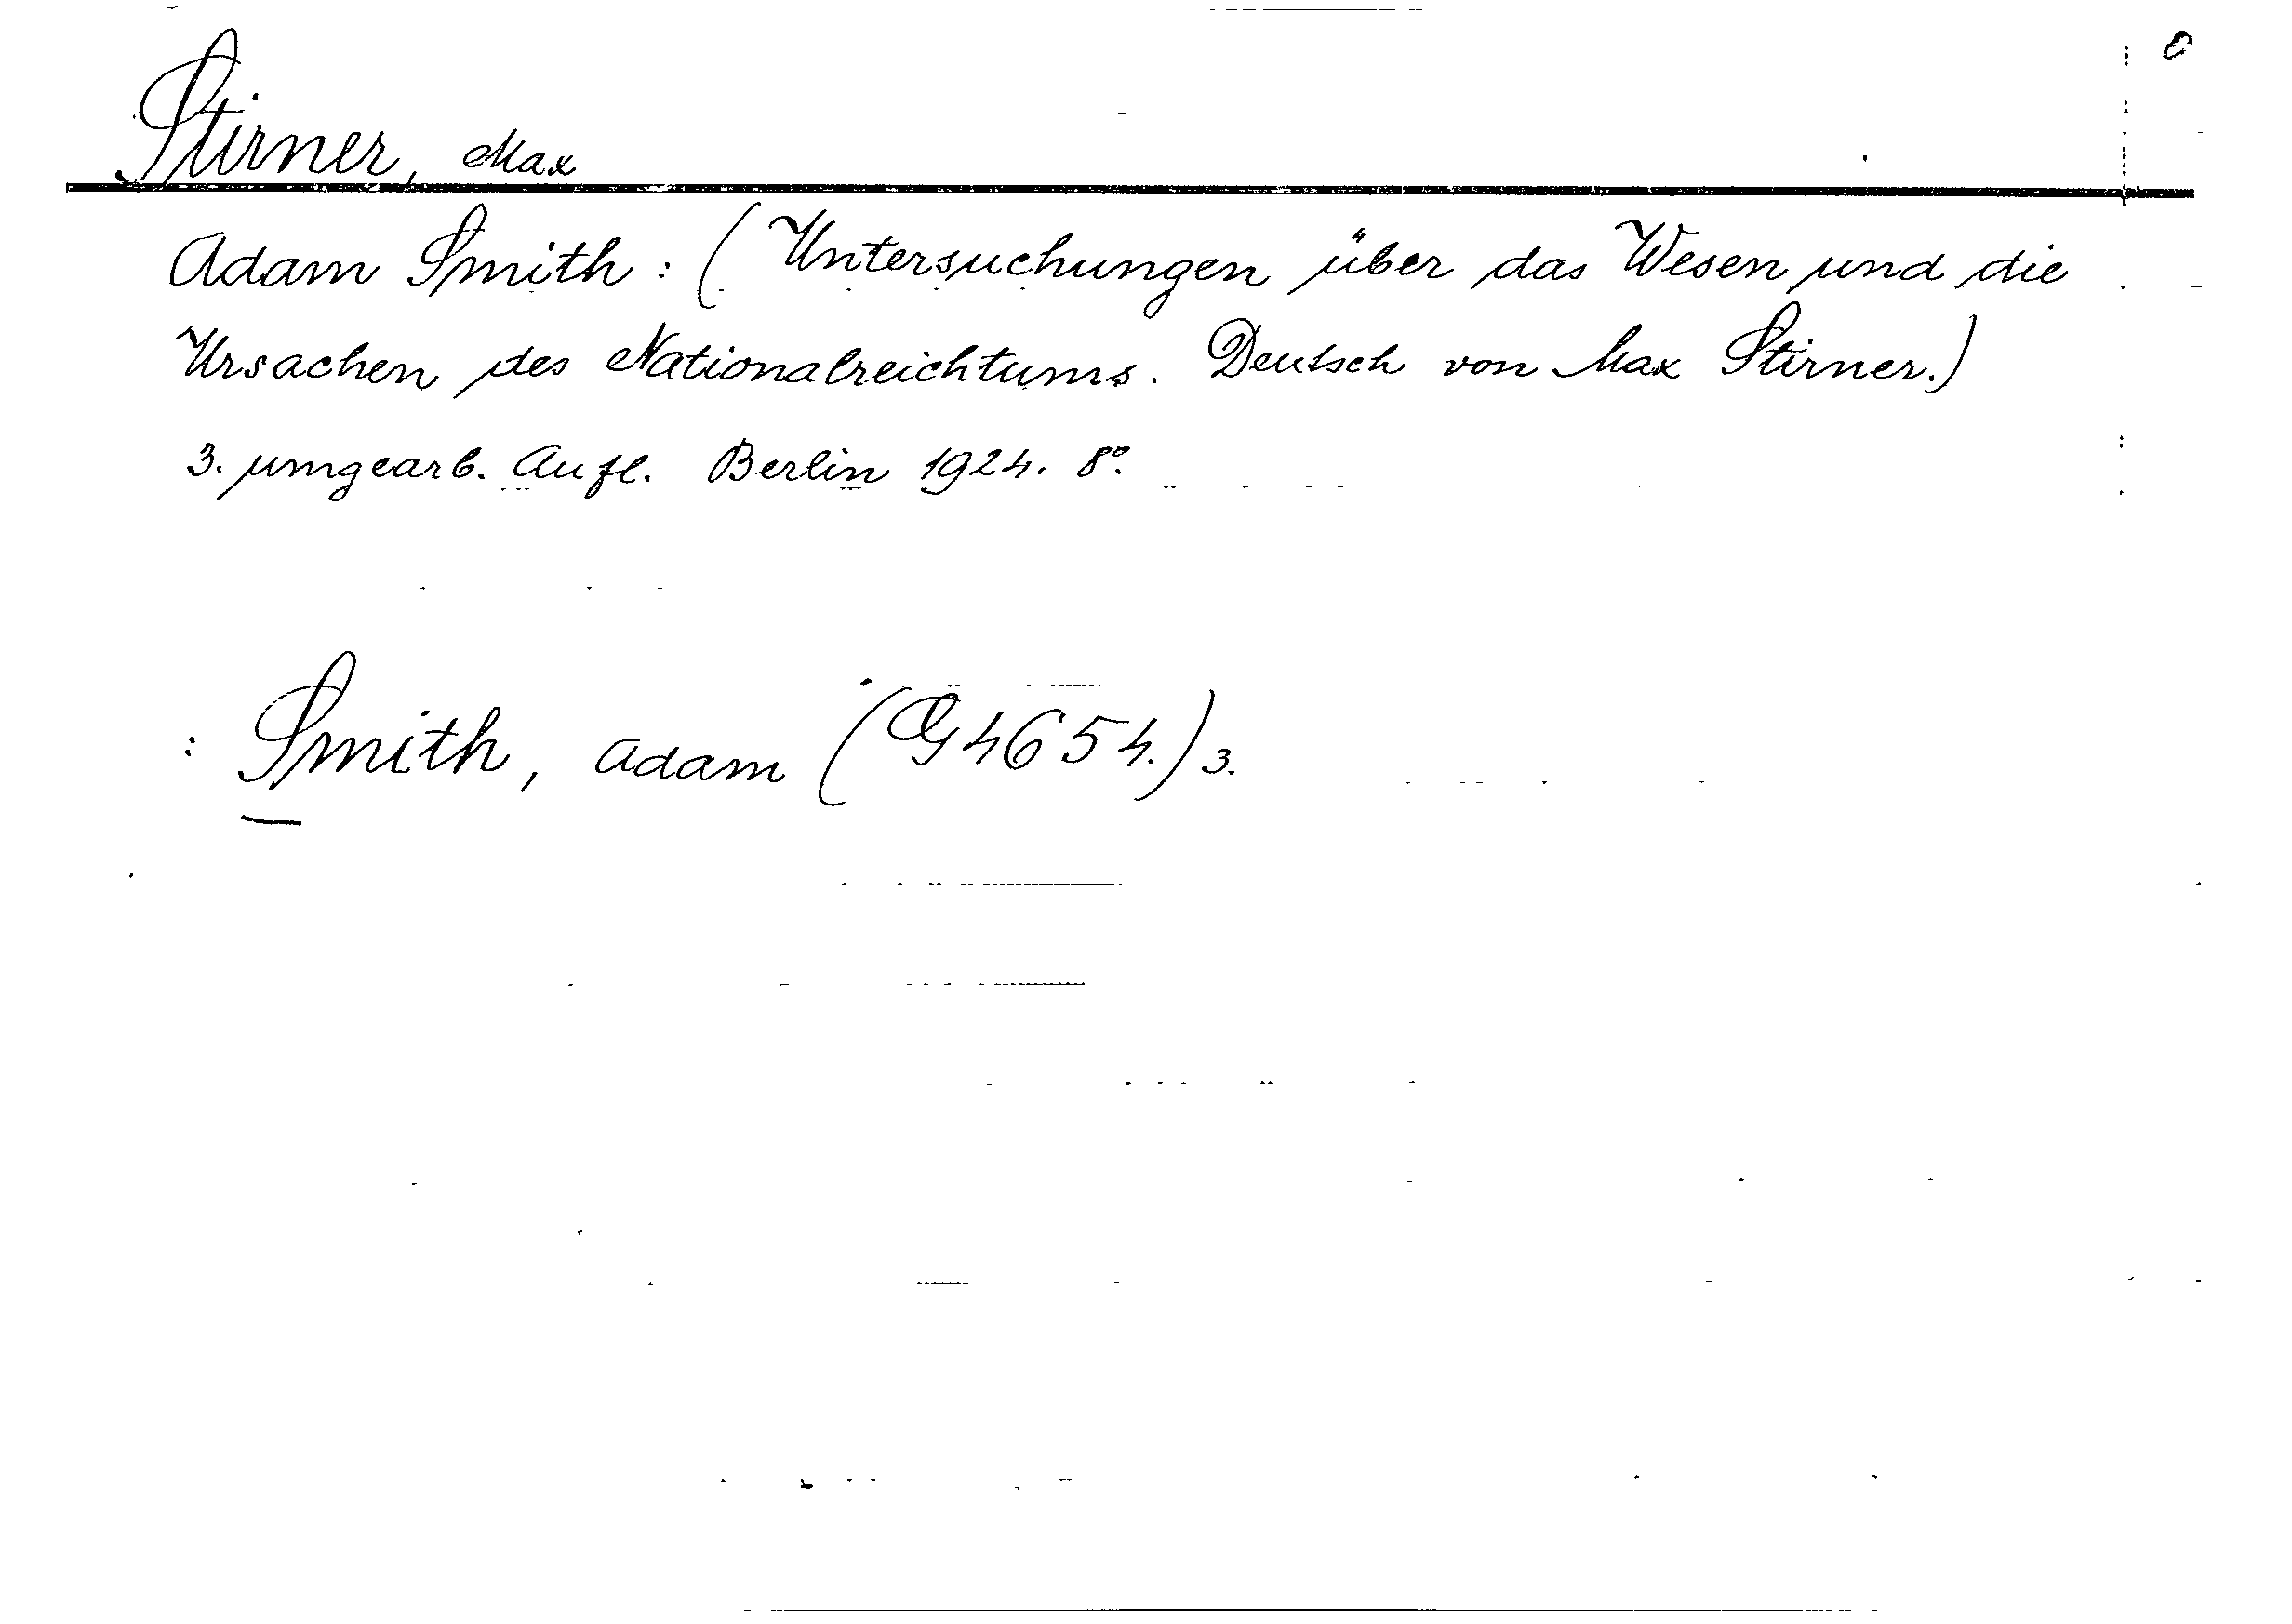 Stirner, Max
Adam Smith: (Untersuchungen über das Wesen und die
Ursachen des Nationalreichtums. Deutsch von Max Stirner.)
3. umgearb. Aufl. Berlin 1924. 8°.
: Smith, Adam (G4654.) 3.